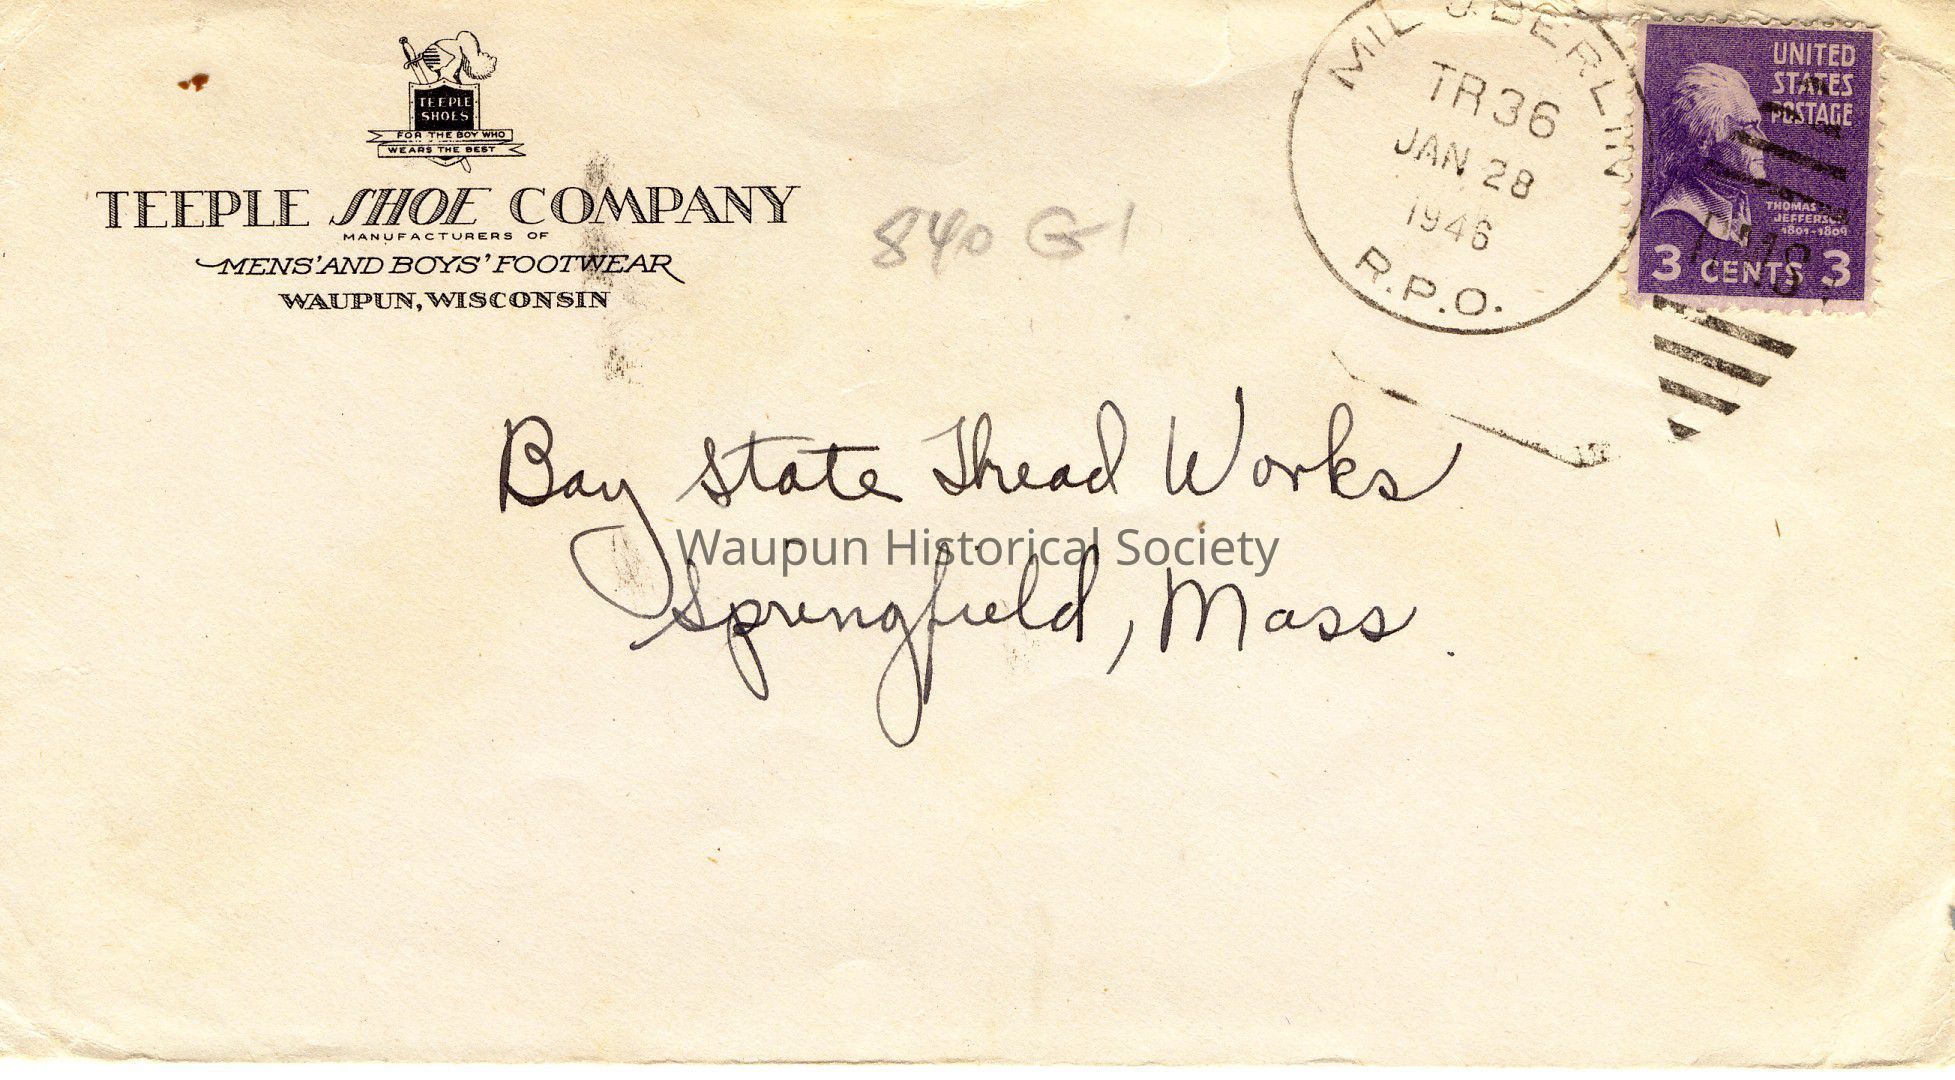 TEEPLE
SHOES
FOR THE BOY WHO
WEARS THE BEST
TEEPLE SHOE COMPANY
MANUFACTURERS OF
MENS' AND BOYS' FOOTWEAR
WAUPUN, WISCONSIN
840 G-1
MIL & BERLIN
TR36
JAN 28
1946
R.P.O.
UNITED
STATES
POSTAGE
THOMAS
JEFFERSON
1801-1809
3 CENTS 3
Bay State Thread Works
Waupun Historical Society
Springfield, Mass.